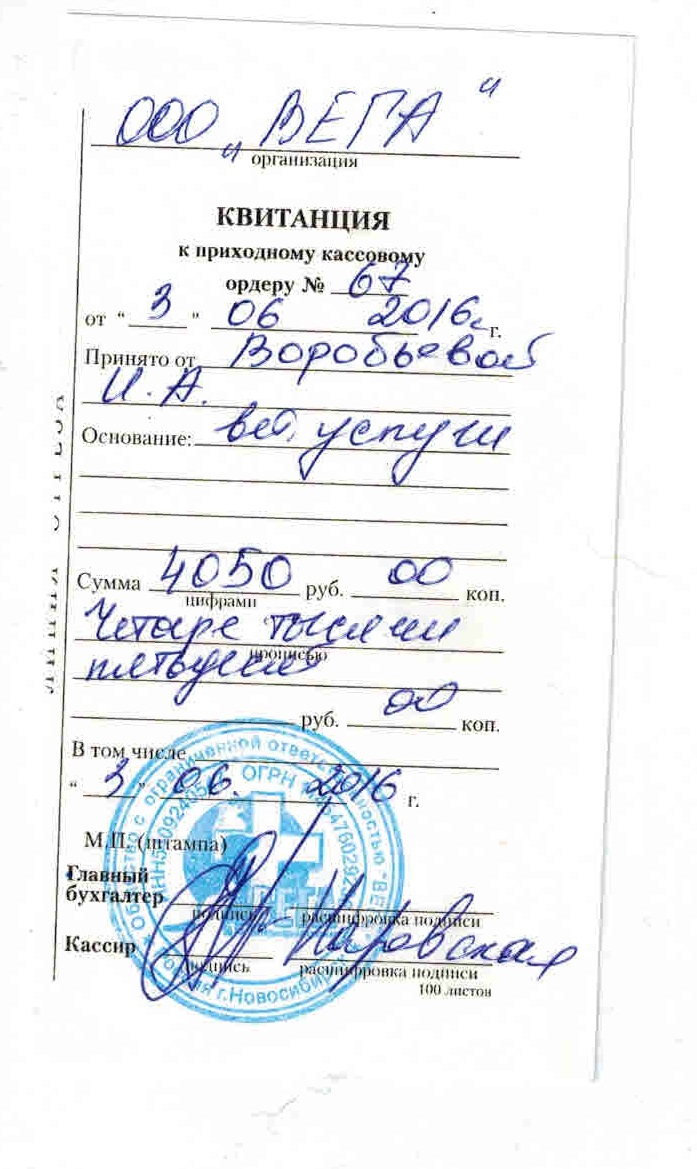 ООО „ВЕГА“
организация
КВИТАНЦИЯ
к приходному кассовому
ордеру № 67
от “ 3 ” 06 2016г. г.
Принято от Воробьевой
И. А.
Основание: вет. услуги
Сумма 4050 руб. 00 коп.
цифрами
Четыре тысячи
прописью
пятьдесят
руб. 00 коп.
В том числе
“ 3 ” 06. 2016 г.
М.П. (штампа)
Главный
бухгалтер
подпись расшифровка подписи
Кассир
подпись расшифровка подписи
100 листов
ЛИНИЯ ОТРЕЗА
Общество с ограниченной ответственностью "ВЕГА"
ОГРН
г.Новосибирск